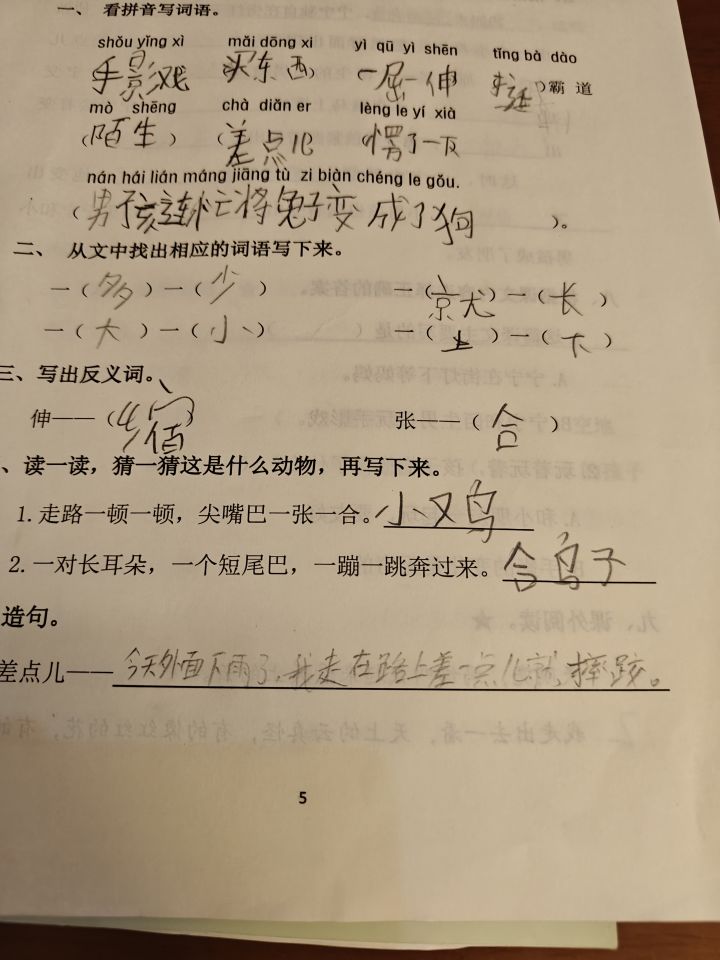 一、 看拼音写词语。
shǒu yǐng xì mǎi dōng xi yì qū yì shēn tǐng bà dào
手影戏 买东西) 一屈一伸 )霸 道
mò shēng chà diǎn er lèng le yí xià
(陌生) (差点儿 愣了一下
nán hái lián máng jiāng tù zi biàn chéng le gǒu.
(男孩连忙将兔子变成了狗 )。
二、 从文中找出相应的词语写下来。
一(多)一(少) 一( )一(长)
一(大)一(小) 一(上)一(下)
三、写出反义词。
伸——( ) 张——(合)
、读一读，猜一猜这是什么动物，再写下来。
1.走路一顿一顿，尖嘴巴一张一合。小又鸟
2.一对长耳朵，一个短尾巴，一蹦一跳奔过来。 子
造句。
差点儿——今天外面下雨了，我走在路上差一点儿就摔跤。
5